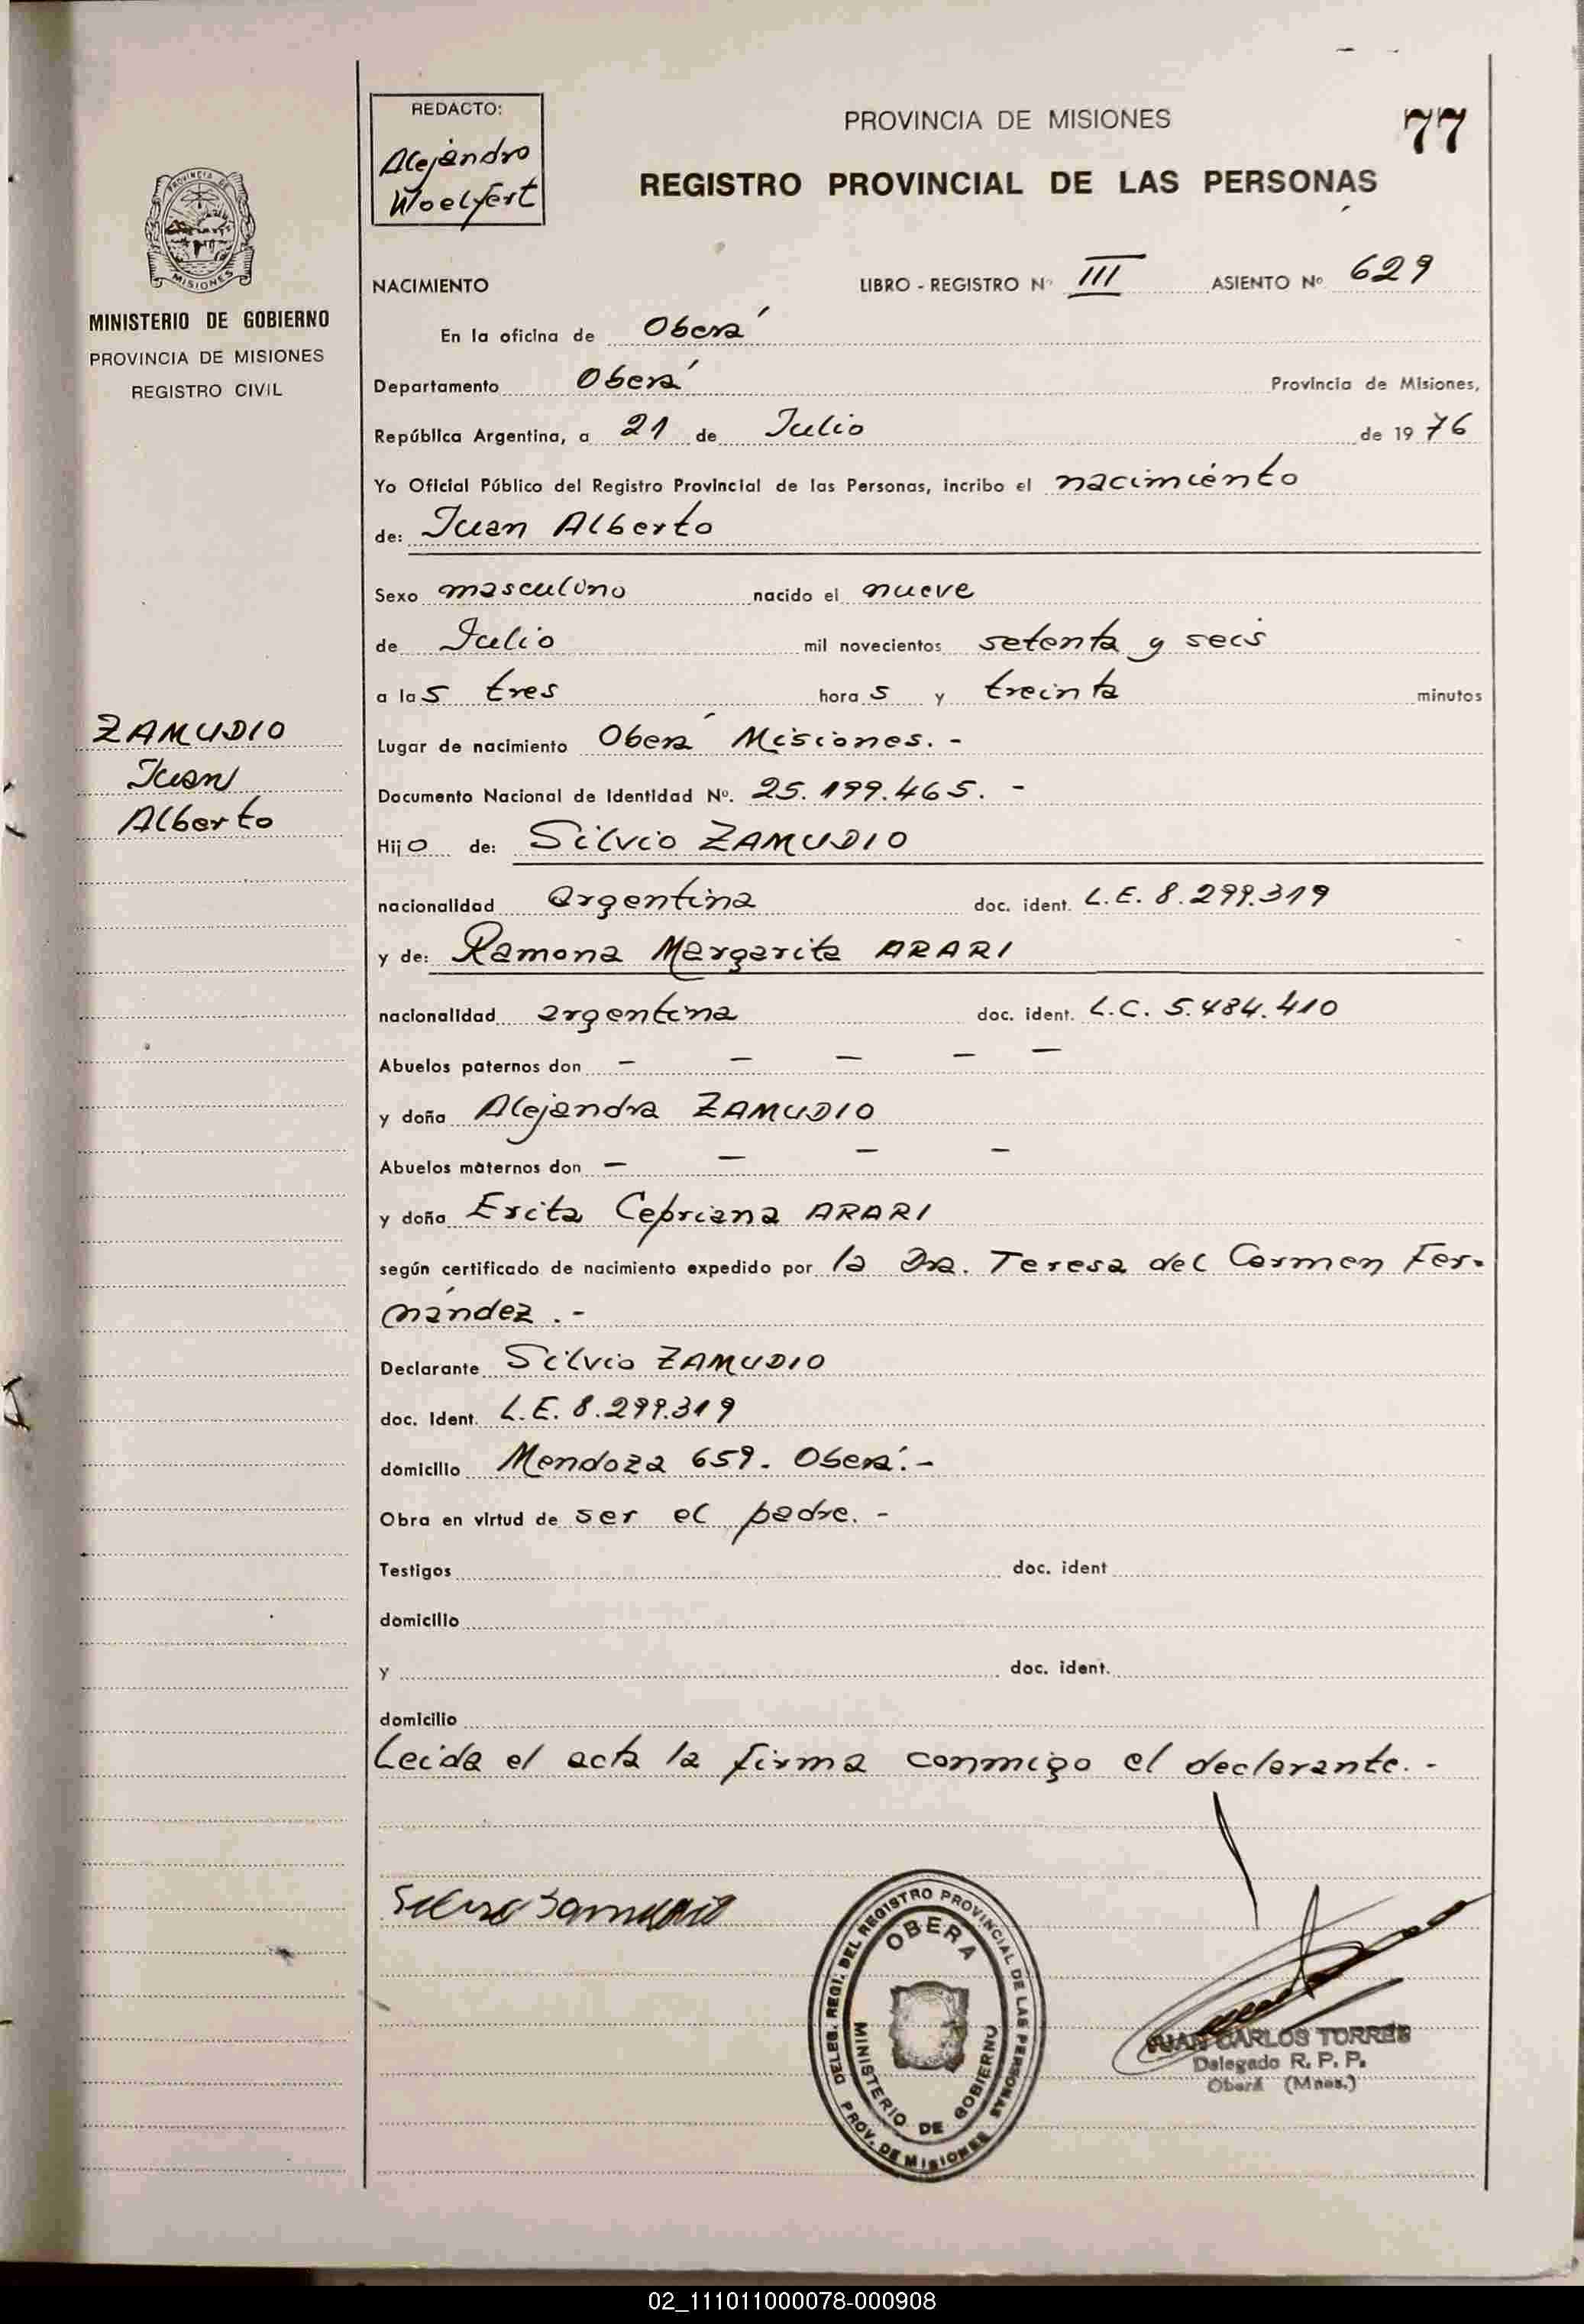 REDACTO:
Alejandro
Woelfert
PROVINCIA DE MISIONES
77
REGISTRO PROVINCIAL DE LAS PERSONAS
PROVINCIA DE
MISIONES
MINISTERIO DE GOBIERNO
PROVINCIA DE MISIONES
REGISTRO CIVIL
NACIMIENTO LIBRO - REGISTRO Nº III ASIENTO Nº 629
En la oficina de Oberá
Departamento Oberá Provincia de Misiones,
República Argentina, a 21 de Julio de 1976
Yo Oficial Público del Registro Provincial de las Personas, incribo el nacimiento
de: Juan Alberto
Sexo masculino nacido el nueve
de Julio mil novecientos setenta y seis
a las tres horas y treinta minutos
ZAMUDIO
Juan
Alberto
Lugar de nacimiento Oberá Misiones. -
Documento Nacional de Identidad Nº. 25.199.465. -
Hijo de: Silvio ZAMUDIO
nacionalidad Argentina doc. ident. L.E. 8.299.319
y de: Ramona Margarita ARARI
nacionalidad argentina doc. ident. L.C. 5.484.410
Abuelos paternos don — — — — —
y doña Alejandra ZAMUDIO
Abuelos maternos don — — — —
y doña Ercita Cepriana ARARI
según certificado de nacimiento expedido por la Dra. Teresa del Carmen Fer-
nández . -
Declarante Silvio ZAMUDIO
doc. Ident. L.E. 8.299.319
domicilio Mendoza 659. Oberá. -
Obra en virtud de ser el padre. -
Testigos doc. ident
domicilio
y doc. ident.
domicilio
Leida el acta la firma conmigo el declarante. -
DELEG. REGI. DEL REGISTRO PROVINCIAL DE LAS PERSONAS
OBERA
MINISTERIO DE GOBIERNO
PROV. DE MISIONES
JUAN CARLOS TORRES
Delegado R. P. P.
Oberá (Mnes.)
02_111011000078-000908